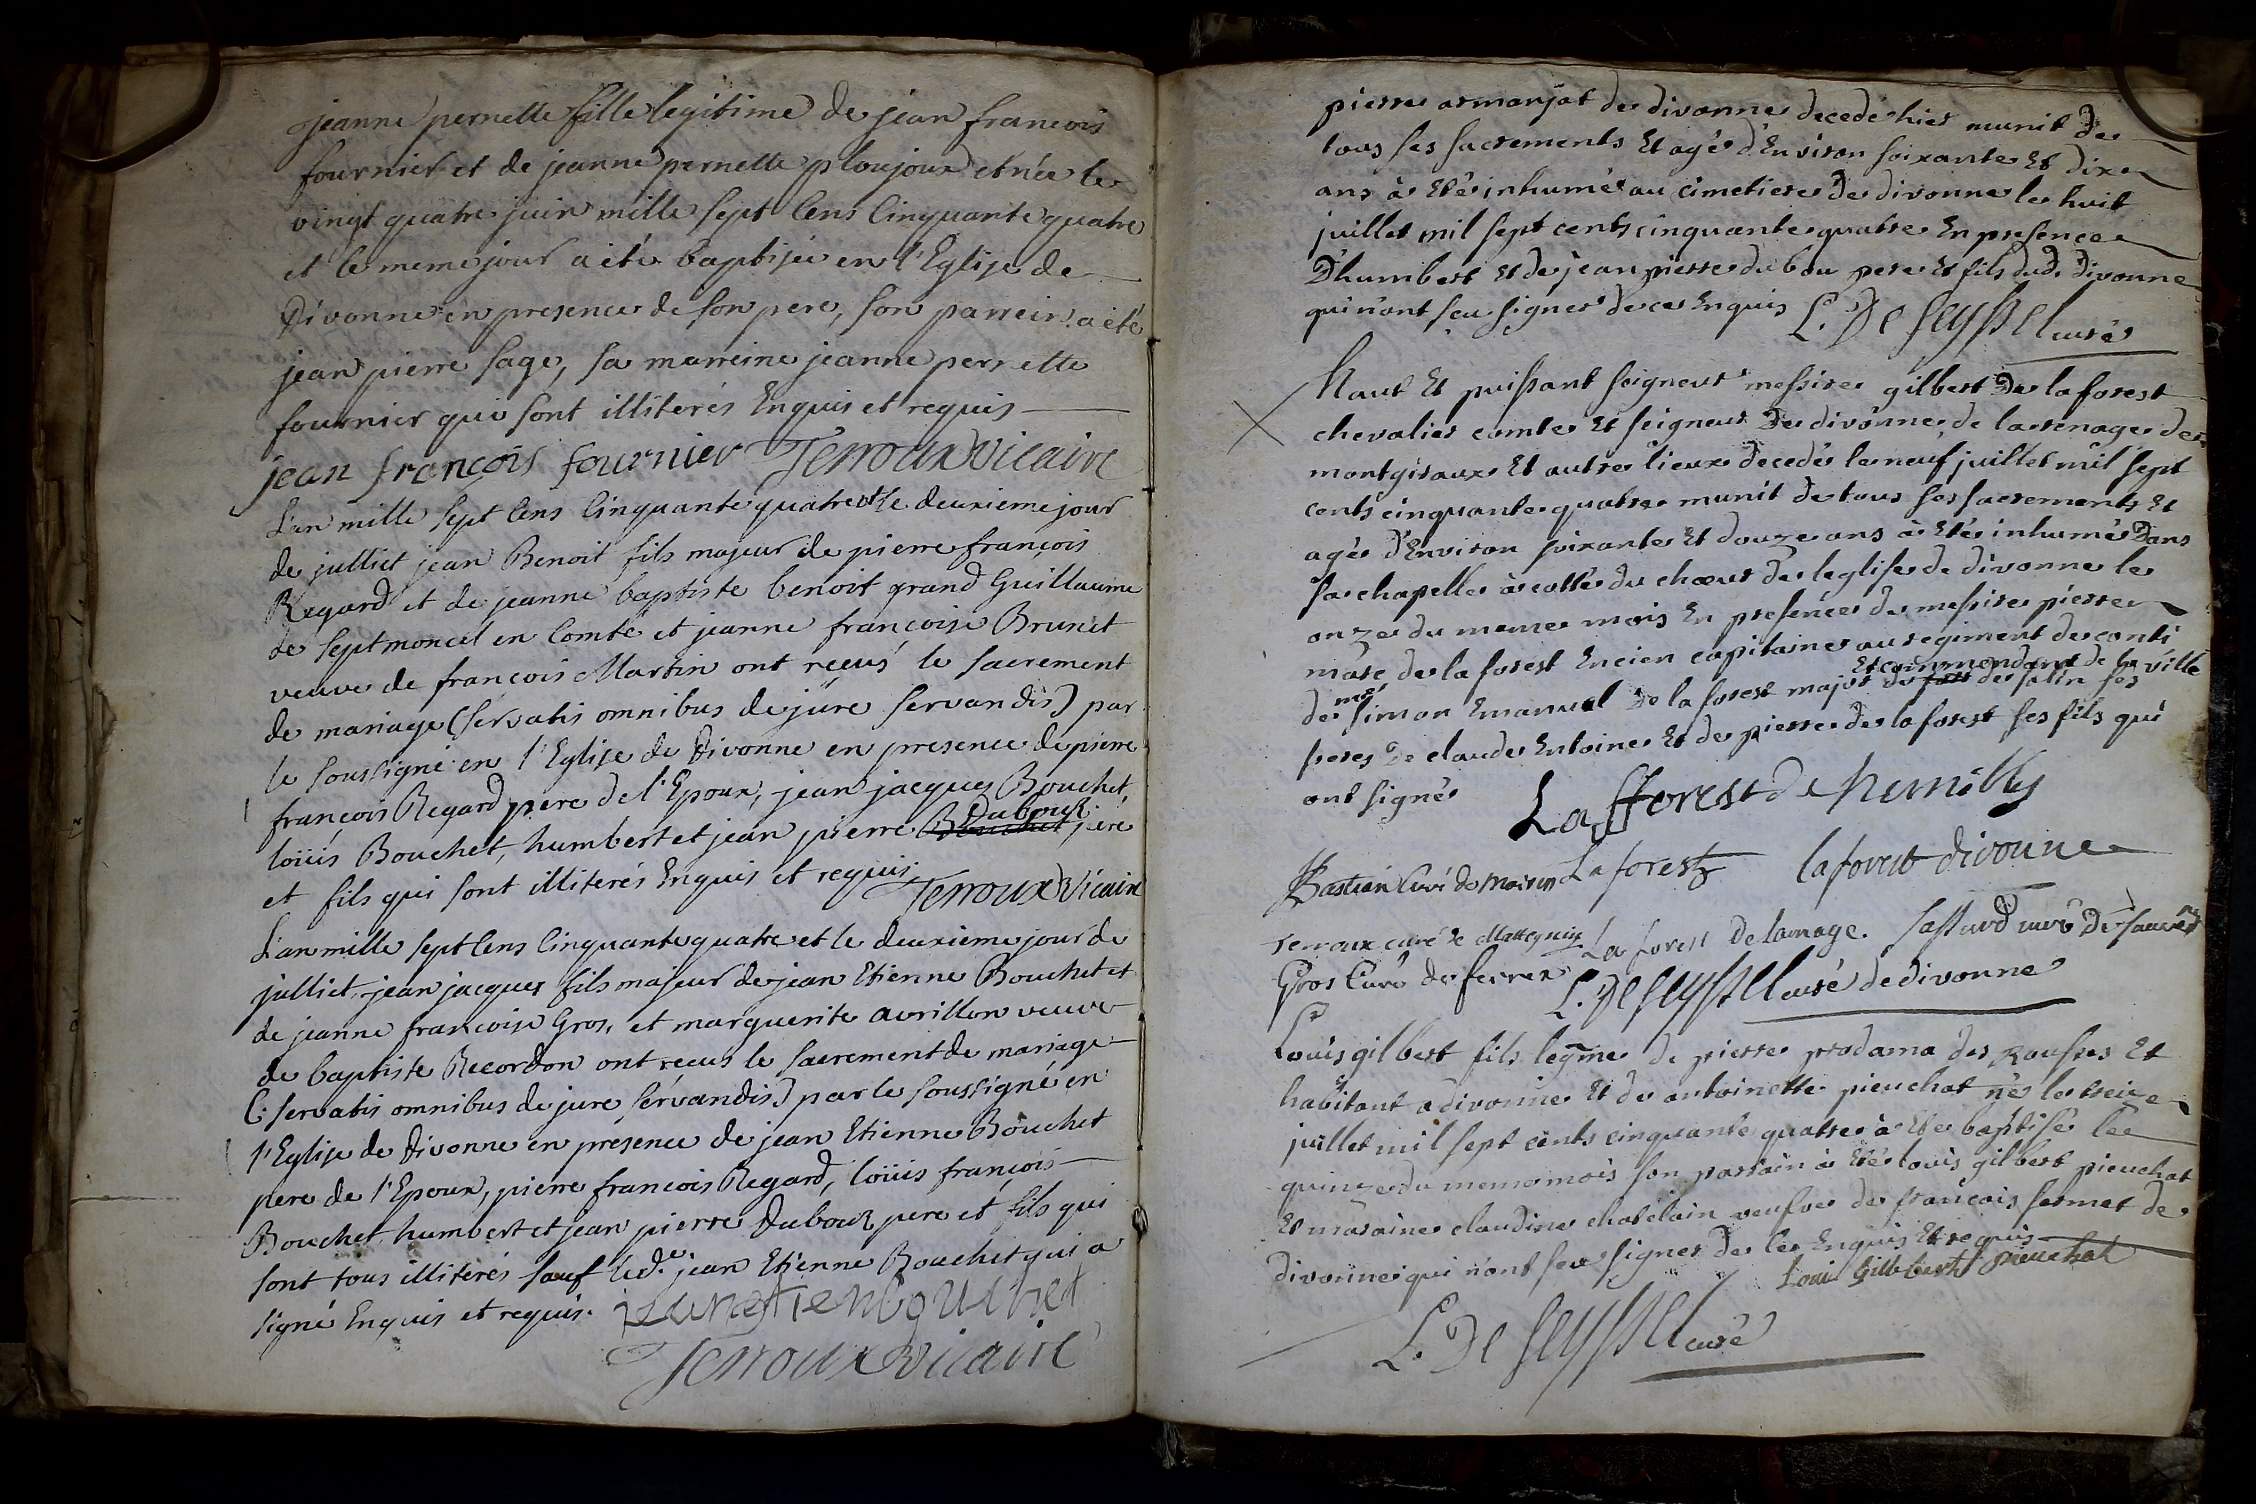 jeanne pernette fille legitime de jean francois
fournier et de jeanne pernette ploujoux et née le
vingt quatre juin mille sept Cens Cinquante quatre
et le meme jour a été baptisée en l'Eglise de
Divonne en presence de son pere, son parrein a été
jean pierre sage, sa marreine jeanne pernette
fournier qui sont illiterés Enquis et requis
jean françois fournier Terroux vicaire
L'an mille sept Cens Cinquante quatre et le deuxieme jour
de julliet jean Benoit fils majeur de pierre françois
Regard et de jeanne baptiste benoit grand Guillaume
de septmoncel en Comté et jeanne françoise Brunet
veuve de françois Martin ont reçus le sacrement
de mariage (servatis omnibus de jure servandis) par
le soussigné en l'Eglise de Divonne en presence de pierre
françois Regard pere de l'Epoux, jean jacques Bouchet,
loüis Bouchet, humbert et jean pierre Bouchet Dubouz pere
et fils qui sont illiterés Enquis et requis
Terroux Vicaire
L'an mille sept Cens Cinquante quatre et le deuxieme jour de
julliet jean jacques fils majeur de jean Etienne Bouchet et
de jeanne francoise Gros, et marguerite avrillon veuve
de baptiste Recordon ont recus le sacrement de mariage
(servatis omnibus de jure servandis) par le soussigné en
l'Eglise de Divonne en présence de jean Etienne Bouchet
pere de l'Epoux, pierre francois Regard, loüis françois
Bouchet humbert et jean pierre Dubouz pere et fils qui
sont tous illiterés sauf led. jean Etienne Bouchet qui a
signé Enquis et requis.
Terroux vicaire
pierre armanjat de divonne decedé hier munit de
tous ses sacrements Et agé d'Environ soixante Et dix
ans à Eté inhumé au cimetiere de divonne le huit
juillet mil sept cents cinquante quatre En presence
D'humbert Et de jean pierre du bou pere Et fils dud. divonne
qui n'ont seu signer de ce Enquis L. De seyssel curé
haut Et puissant seigneur messire gilbert De la forest
chevalier comte Et seigneur De divonne, de la renage de
montgiraux Et autre lieux decedé le neuf juillet mil sept
cents cinquante quatre munit de tous ses sacrements Et
agé d'Environ soixante Et douze ans à Eté inhumé Dans
sa chapelle à collé du choeur de leglise de divonne le
onze du meme mois En presence de messire pierre
marc de la forest Encien capitaine au regiment de conti
Et commendant de la ville
de mre simon Emanuel De la forest major de fort de salin ses
peres De claude Entoine Et de pierre de la forest ses fils qui
ont signé
La fforest de Rumilly
Bastian Curé de Moiren La forest la forest divonne
Terroux curé de La forest Delarnage.
Gros Curé de ferrex L. De seyssel curé de divonne
Sr
Louis gilbert fils legme de pierre prodama des Rousses Et
habitant a divonne Et de antoinette pieuchat né le treize
juillet mil sept cents cinquante quatre à Eté baptisé le
quinze du meme mois son parrain à Eté louis gilbert pieuchat
Et maraine claudine chatelain veufve de francois fermet de
divonne qui n'ont seu signer de ce Enquis Et requis
Loui Gilbert pieuchat
L. De seyssel curé